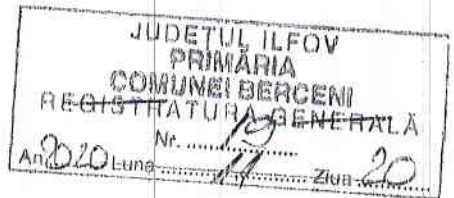 JUDEȚUL ILFOV
PRIMĂRIA
COMUNEI BERCENI
REGISTRATURA GENERALĂ
Nr. ........19........
An 2020 Luna ........11........ Ziua 20